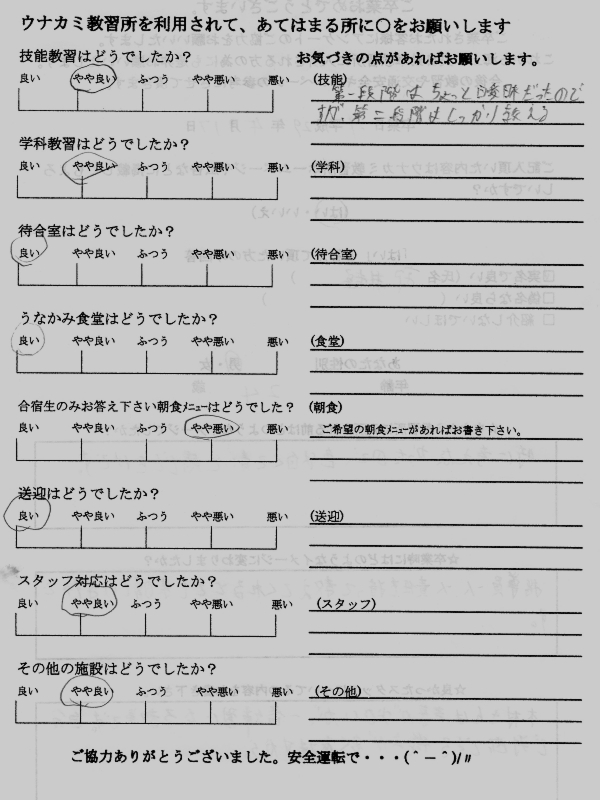 ウナカミ教習所を利用されて、あてはまる所に〇をお願いします
技能教習はどうでしたか？
お気づきの点があればお願いします。
良い やや良い ふつう やや悪い 悪い
(技能)
第一段階はちょっと曖昧だったので
すが、第二段階はしっかり教える
学科教習はどうでしたか？
良い やや良い ふつう やや悪い 悪い
(学科)
待合室はどうでしたか？
良い やや良い ふつう やや悪い 悪い
(待合室)
うなかみ食堂はどうでしたか？
良い やや良い ふつう やや悪い 悪い
(食堂)
合宿生のみお答え下さい朝食ﾒﾆｭｰはどうでしたか？
(朝食)
良い やや良い ふつう やや悪い 悪い
ご希望の朝食メニューがあればお書き下さい。
送迎はどうでしたか？
良い やや良い ふつう やや悪い 悪い
(送迎)
スタッフ対応はどうでしたか？
良い やや良い ふつう やや悪い 悪い
(スタッフ)
その他の施設はどうでしたか？
良い やや良い ふつう やや悪い 悪い
(その他)
ご協力ありがとうございました。安全運転で・・・(＾－＾)/〃